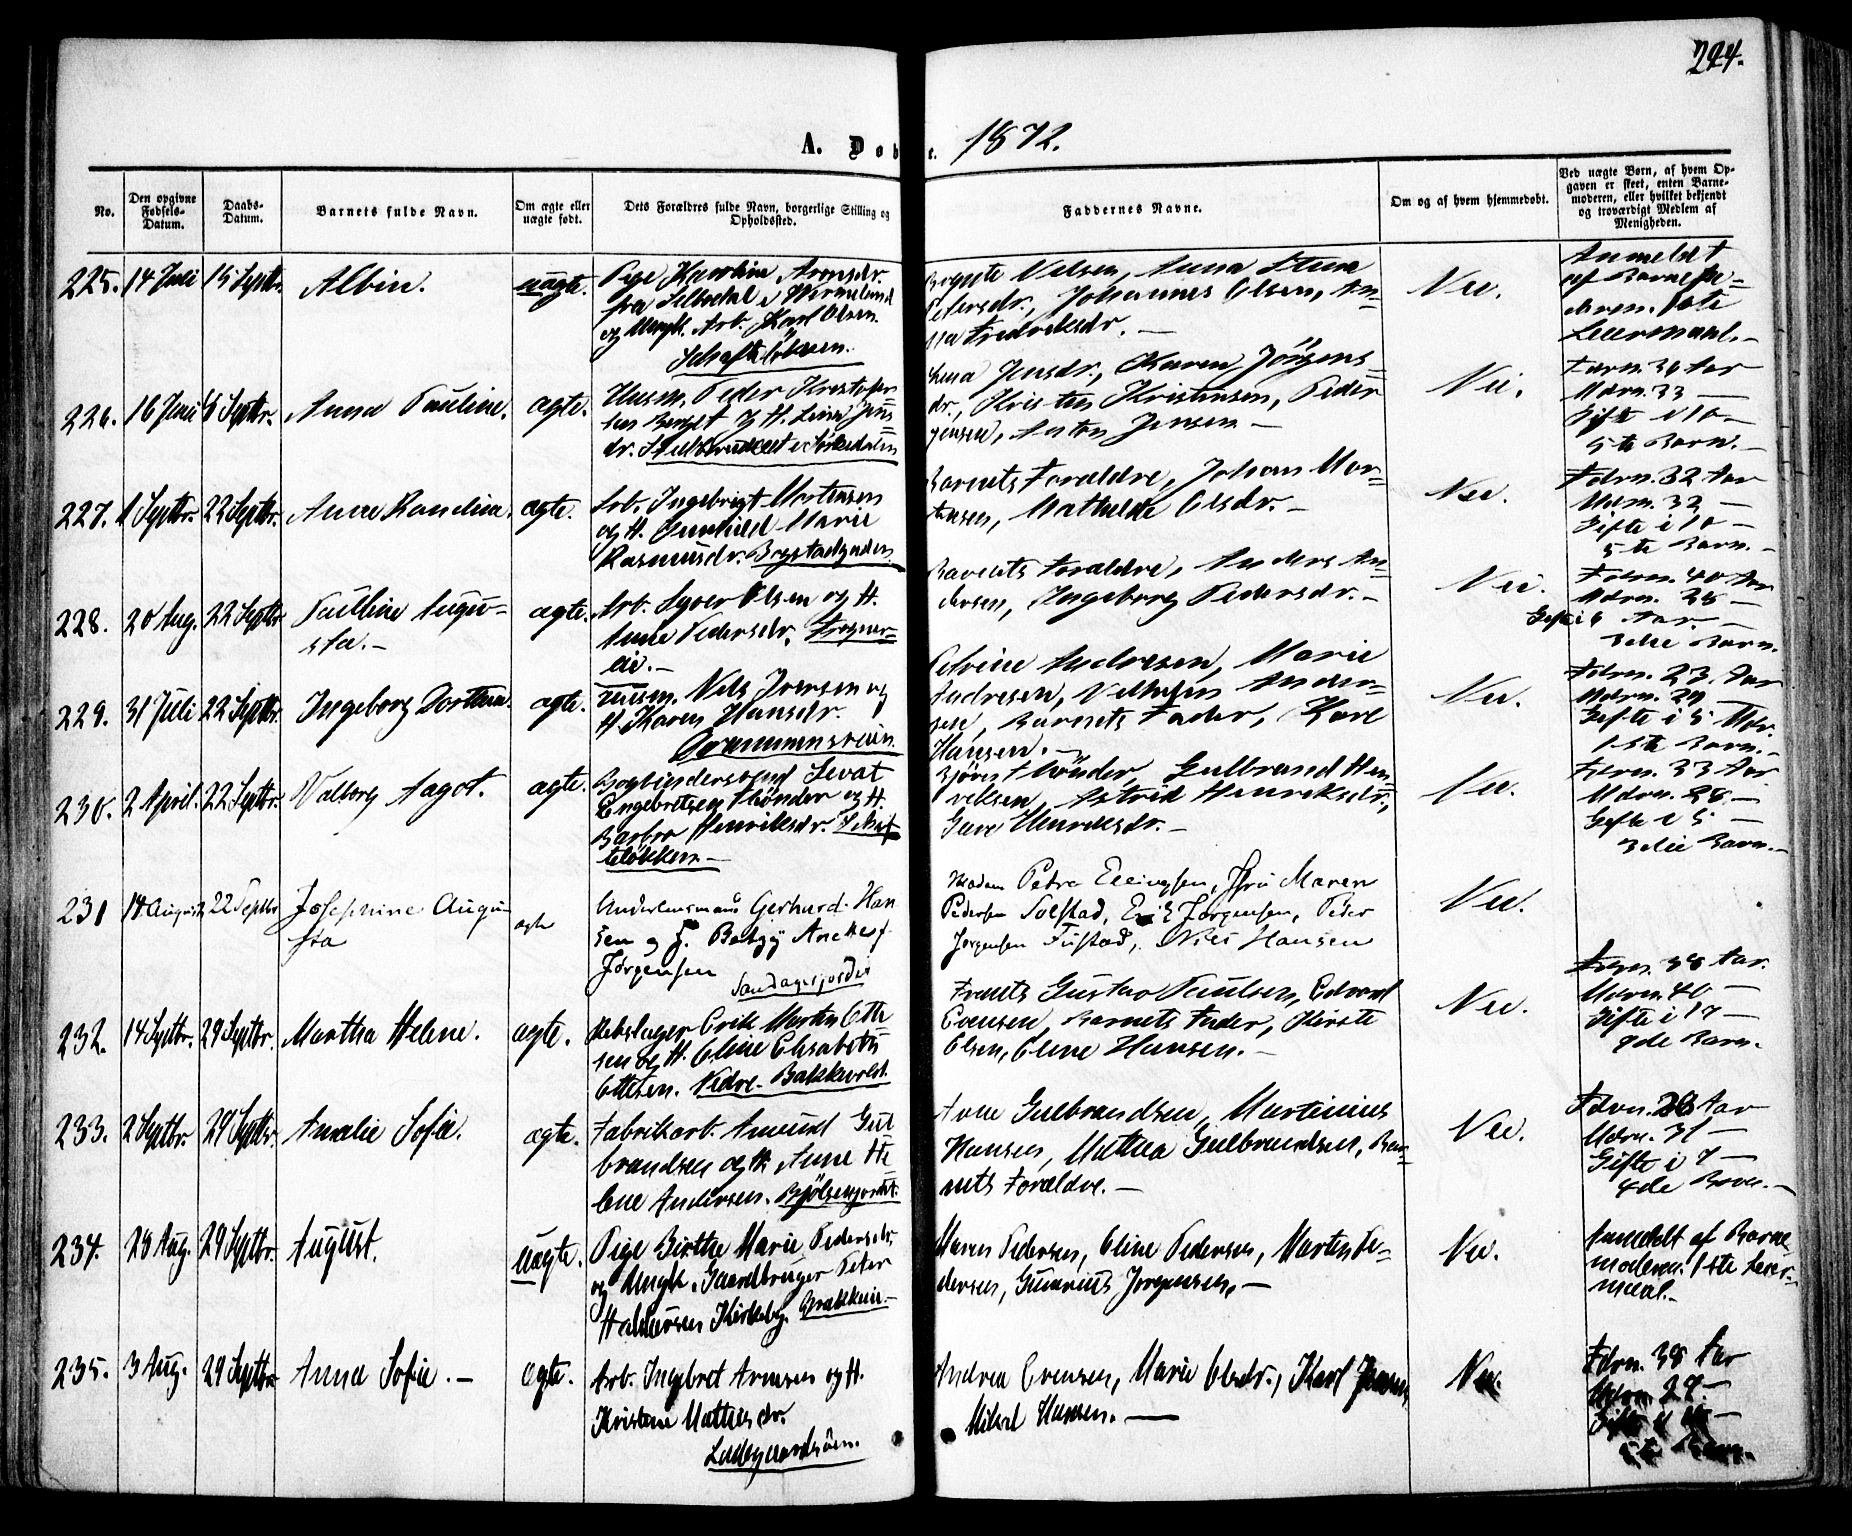 224.
A. Døbte. 1872.
No.
Den opgivne Fødsels-Datum.
Daabs-Datum.
Barnets fulde Navn.
Om ægte eller uægte født.
Dets Forældres fulde Navn, borgerlige Stilling og Opholdssted.
Faddernes Navne.
Om og af hvem hjemmedøbt.
Ved uægte Børn, af hvem Opgaven er skeet, enten Barnemoderen, eller hvilket bekjendt og troværdigt Medlem af Menigheden.
225. 14 Juli 15 Septbr. Albin. uægte.
Pige Karoline Aronsdr.
fra Silbodal i Wermeland
og Ungk. Arb. Karl Olsen.
Schafteløkken.
Nilsen, Anna Stina
Petersdr., Johannes Olsen, An=
na Fredriksdr. —
Nei.
Anmeldt
af Barnefa=
deren. 1ste
Leiermaal. —
226. 16 Juni 15 Septbr. Anna Pauline. ægte.
Husm. Peder Kristofer
sen Berget og H. Lina Jens
dr. i Sørkedalen
Jensdr., Karen Jörgens=
dr., Kristian Kristiansen, Peder
Jensen, Anton Jensen —
Nei.
Fdrn. 36 Aar
Mdrn. 33 —
Gifte i 10 —
5te Barn. —
227. 1 Septbr. 22 Septbr. Anne Randine. ægte.
Arb. Ingebrigt Mortensen
og H. Gunhild Marie
Rasmusdr. Bogstadgaden.
Barnets Forældre, Johan Mor=
tensen, Mathilde Olsdr. —
Nei.
Fdrn. 32 Aar
Mdrn. 32 —
Gifte i 10 —
5te Barn. —
228. 20 Aug. 22 Septbr. Pauline Augu=
sta. —
ægte.
Arb. Syver Olsen og H.
Anne Pedersdr. Frogner=
ei. —
Barnets Forældre, Anders An=
dersen, Ingeborg Pedersdr. —
Nei.
Fdrn. 40 Aar
Mdrn. 28 —
Gifte i 8 Aar. —
3die Barn.
229. 31 Juli 22 Septbr. Ingeborg Dorthea. ægte.
Husm. Nils Iversen og
H. Karen Hansdr.
Andresen, Marie
Andresen, Vilhelm Ander=
sen, Barnets Fader, Karl
Hansen. —
Nei.
Fdrn. 23 Aar
Mdrn. 29 —
Gifte i 5 Mdr.
1ste Barn. —
230. 2 April. 22 Septbr. Valborg Aagot. ægte.
Bogbindersvend Sevat
Engebretsen Thönder og H.
Barbro Henriksdr. Schaf=
teløkken —
Björn Thönder, Gulbrand Hen=
riksen, Astrid Henriksdr.,
Henriksdr. —
Nei.
Fdrn. 33 Aar
Mdrn. 28 —
Gifte i 5 —
3die Barn. —
231 14 August 22 Septbr Josephine Augu=
sta
ægte
Underlensmand Gerhard Han
sen og H. Betzy Anette f.
Jørgensen
Sandagerjordet
Madam Petra Ellingsen, Jfru Maren
Pedersen Solstad, Erik Jørgensen, Peder
Jørgensen Fustad, Nils Hansen
Nei.
232. 14 Septbr. 29 Septbr. Martha Helene. ægte.
Rebslager Erik Martin Otte
sen og H. Oline Elisabeth
Ottesen. Nedre Bakkevold.
Frants Gustav Paulsen, Edvard
Evensen, Barnets Fader, Kirste
Olsen, Oline Hansen. —
Nei.
Fdrn. 38 Aar.
Mdrn. 40 —
Gifte i 17 —
9de Barn.
233. 2 Septbr. 29 Septbr. Amalie Sofie. ægte.
Fabrikarb. Amund Gul
brandsen og H. Anne He=
lene Andersen. Bjölsenjordet.
Gulbrandsen, Martinius
Hansen, Mathea Gulbrandsen, Bar=
nets Forældre. —
Nei.
Fdrn. 28 Aar
Mdrn. 31 —
Gifte i 7 —
4de Barn. —
234. 28 Aug. 29 Septbr. August. uægte.
Pige Birthe Marie Pedersdr.
og Ungk. Gaardbruger Peter
Halvorsen Kirkeby. Brækkeie. —
Maren Pedersen, Oline Pedersen, Morten Pe=
dersen, Gunerius Jørgensen. —
Nei.
Anmeldt af Barne
moderen. 1ste Leier=
maal. —
235. 3 Aug. 29 Septbr. Anna Sofie. — ægte.
Arb. Ingebret Arnesen og H.
Kristine Mathiesdr.
Ladegaardsöen.
Andrea Evensen, Marie Olsdr., Karl Jensen,
Mikal Hansen. —
Nei.
Fdrn. 38 Aar
Mdrn. 27 —
5te Barn.